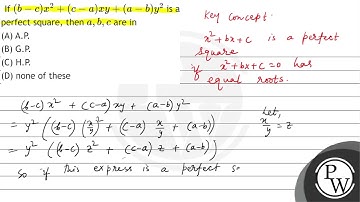 If (b−c)x² + (c−a)xy + (a−b)y² is a
perfect square, then a, b, c are in
(A) A.P.
(B) G.P.
(C) H.P.
(D) none of these
Key Concept:
x² + bx + c is a perfect
square
if x² + bx + c = 0 has
equal roots.
(b-c) x² + (c-a) xy + (a-b) y²
= y² ( (b-c) (x/y)² + (c-a) x/y + (a-b) )
Let,
x/y = z
= y² ( (b-c) z² + (c-a) z + (a-b) )
So if this express is a perfect s
PW